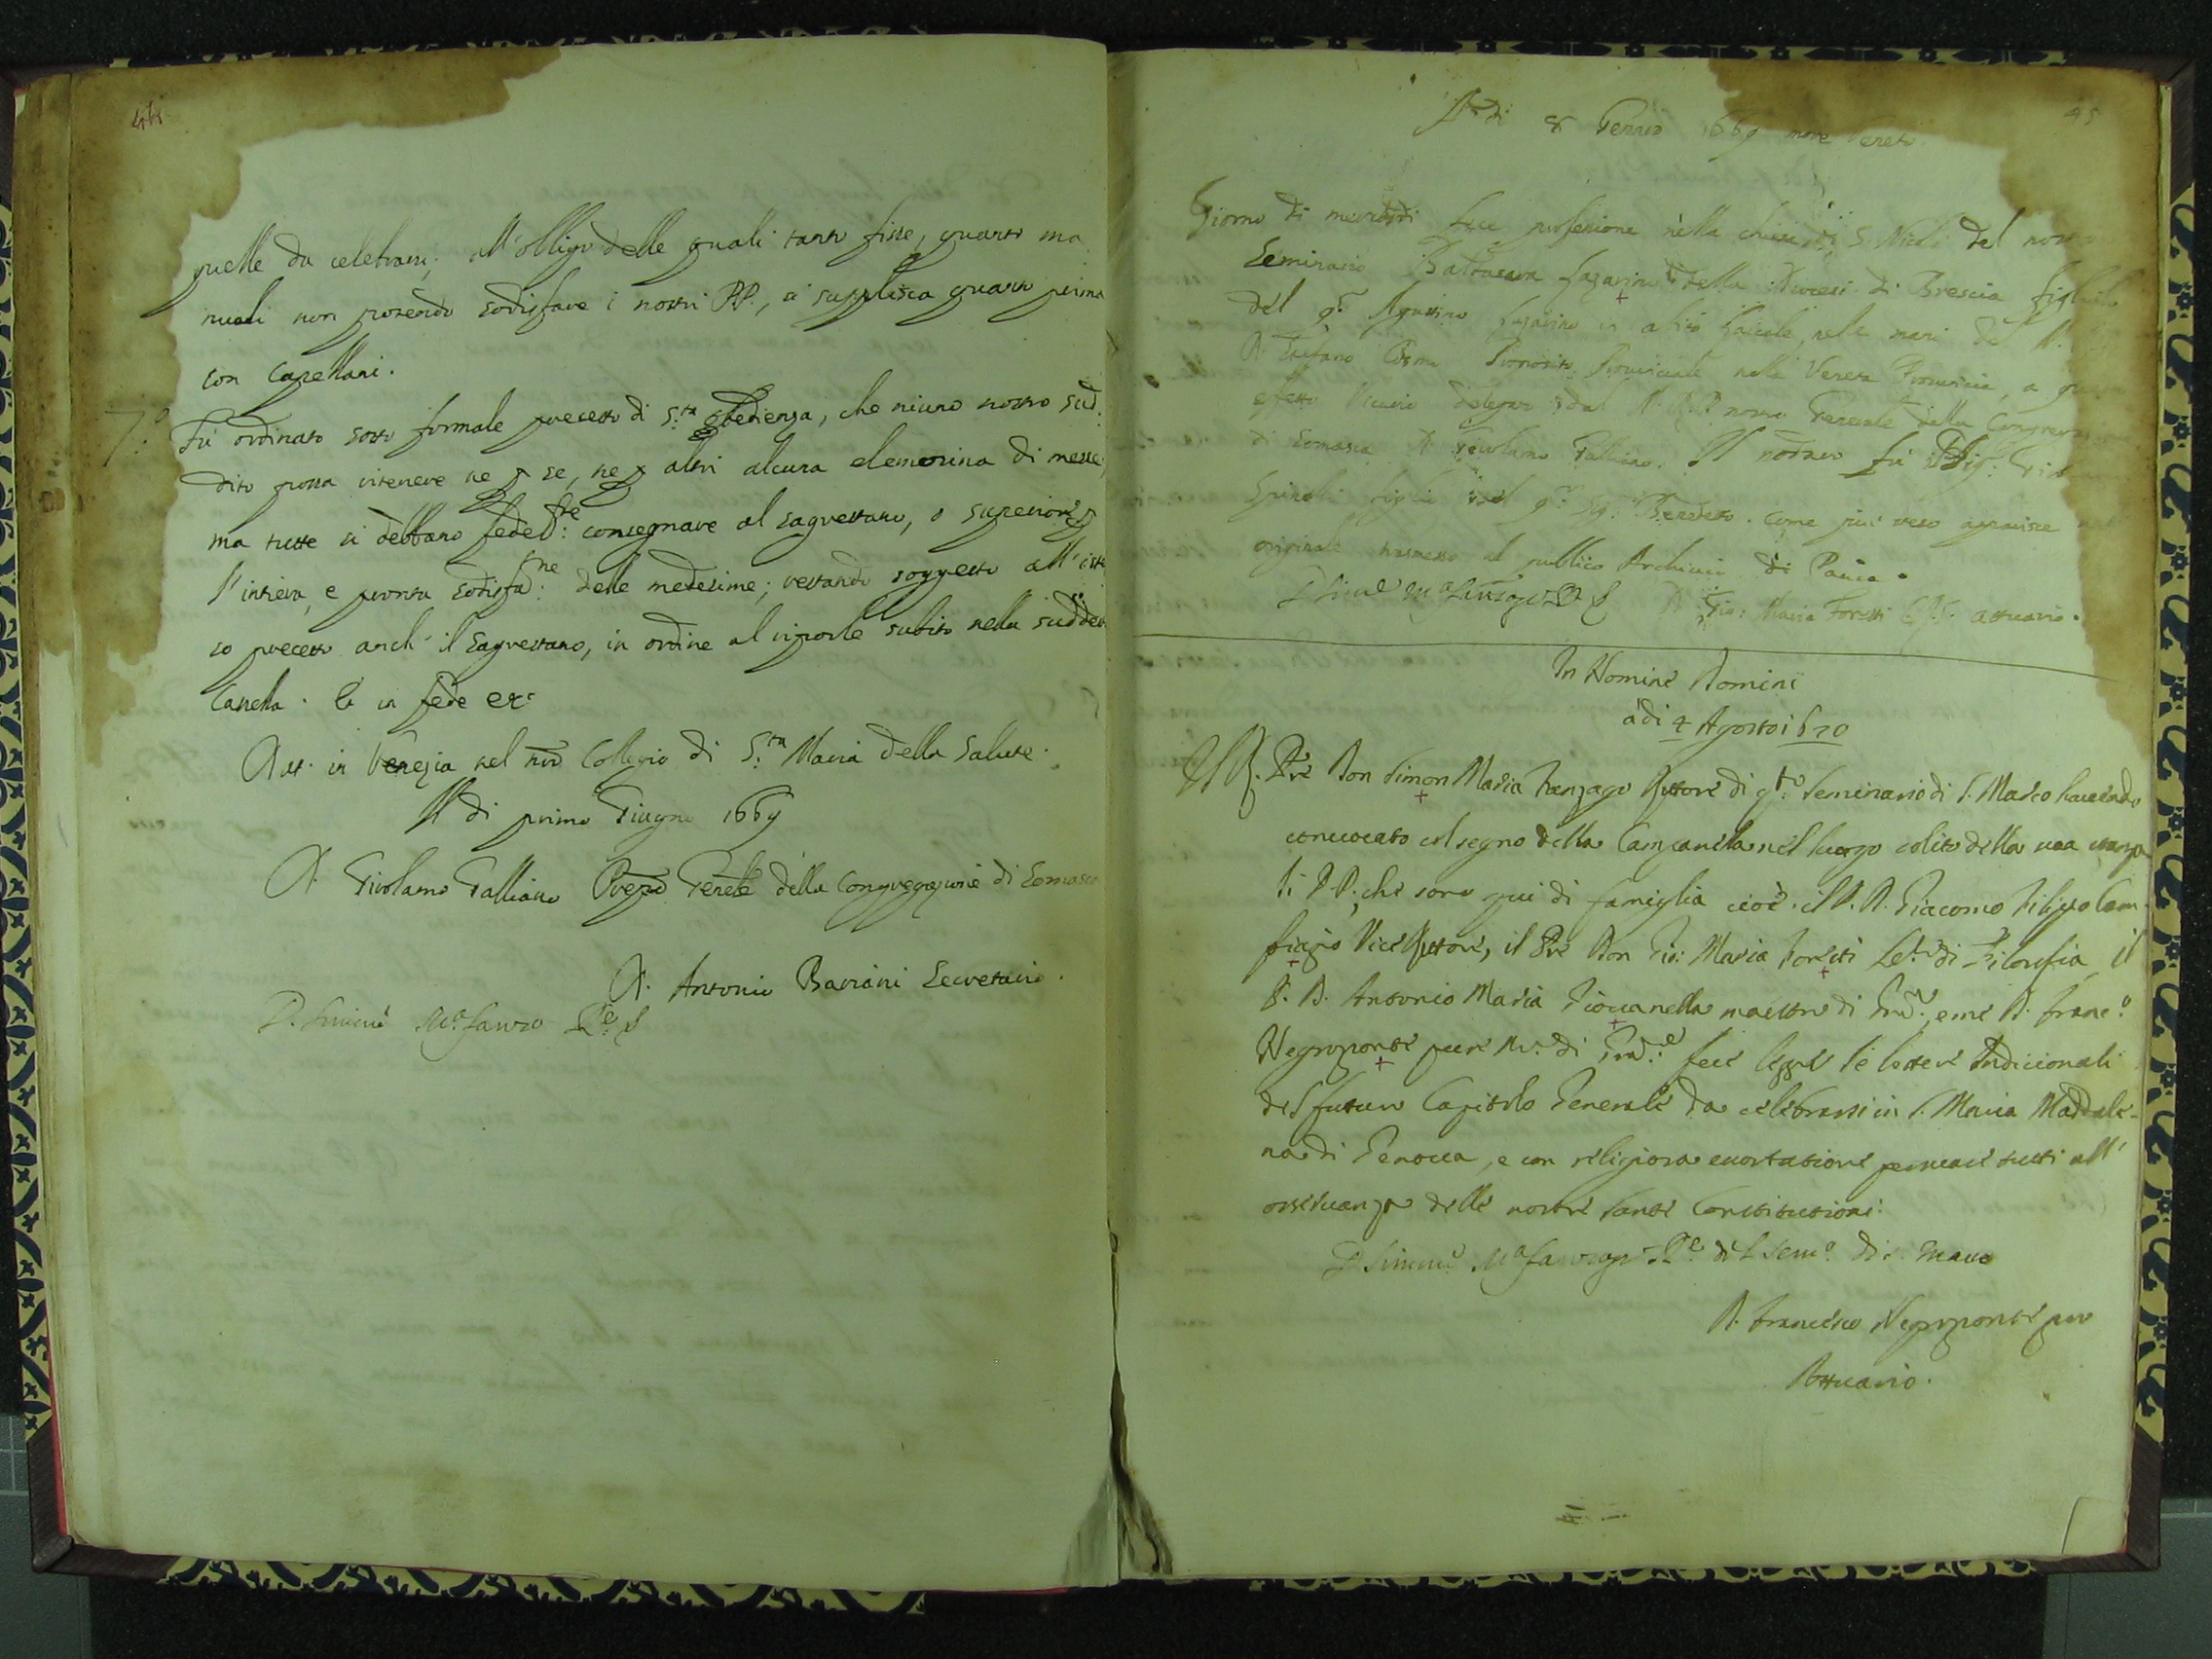 44
quelle da celebrarsi; all'obligo delle quali tanto fisse, quanto ma
nuali non potendo sodisfare i nostri PP., si supplisca quanto prima
con Capellani.
7.º Fù ordinato sotto formale precetto di S.ta Obedienza, che niuno nostro sud:
dito possa ritenere ne p se, ne p altri alcuna elemosina di messe,
ma tutte si debbano fedel:te consegnare al sagrestano, o superiore p
l'intiera, e pronta sodisfa:ne delle medesime; restando soggetto all'istes
so precetto anch'il Sagrestano, in ordine al riporle subito nella suddetta
Cassella. Et in fede etc:
Dat. in Venezia nel nro Collegio di S.ta Maria della Salute.
Il di primo Giugno 1669
D. Girolamo Galliano Prepto Genele della Congregazione di Somasca
D. Antonio Baviani Secretario.
D. Simone Ma Sanzo Re S
45
A di 8 Genno 1669 more Veneto
Giorno di mercordi fece professione nella chiesa di S. Nicolò del nostro
Seminario Baldasara della Diocesi di Brescia figliolo
del q. Agostino in abito laicale, nele mani del
D. Stefano Cosmi Preposito Provinciale nella Veneta Provincia, a
efetto Vicario delegato dal nostro Generale della Congregazione
di Somasca D. Girolamo Galliano. Il nodaro fù il Sig:
Spinelli figlio del q. Sig. Benedetto. come più vero apparisce nel
originale trasmesso al publico Archivio di Pavia.
D. Gio: Maria Foresti C.R.S. attuario.
In Nomine Domini
àdi 4 Agosto 1670
Il R. Pre Don Simon Maria Sanzago Rettore di q.to Seminario di S. Marco havendo
convocato col segno della Campanella nel luogo solito della sua stanza
li PP. che sono qui di famiglia cioè. il P. D. Giacomo Filippo Cam-
piagio Vice Rettore, il Pre Don Gio: Maria Foresti Let.re di Filosofia, il
P. D. Antonio Maria Giovanella maestro di Gra.ca, e me D. Franc.o
Negroponte pure Mro di Gra.ca fece legger le lettere Indicionali
del futuro Capitolo Generale da celebrarsi in S. Maria Maddale-
na di Genova, e con religiosa exortatione persuase tutti all'
osservanza delle nostre sante Constitutioni.
D. Simone Ma Sanzago Re del Semo di S. Marco
D. Francesco Negroponte pro
Attuario.